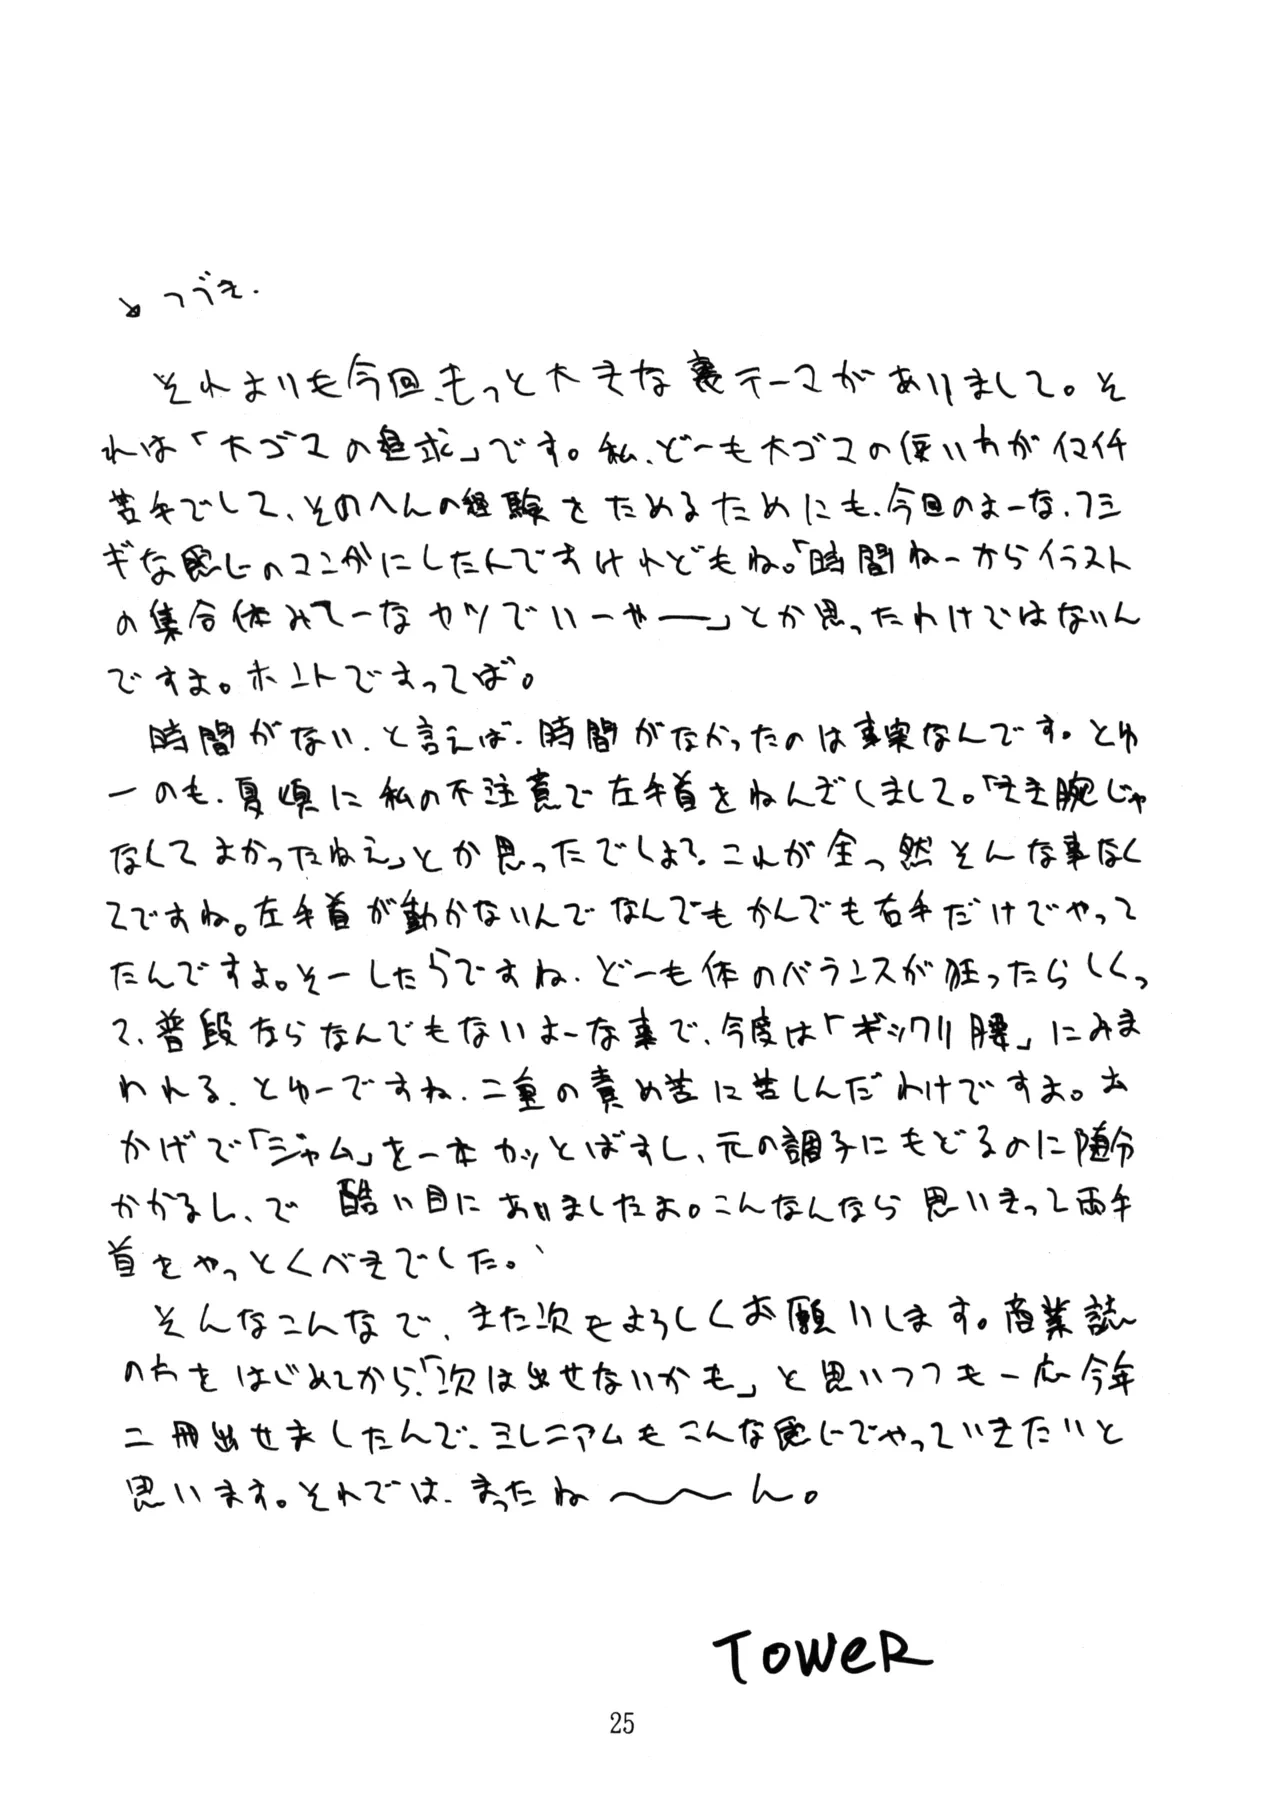 ↘つづき.
それよりも今回、もっと大きな裏テーマがありまして。そ
れは「大ゴマの追求」です。私、どーも大ゴマの使いかがイマイチ
苦手でして、そのへんの経験をためるためにも、今回のよーな、フシ
ギな感じのマンガにしたんですけれどもね。「時間ねーからイラスト
の集合体みてーなヤツでいーやー」とか思ったわけではないん
ですよ。ホントですってば。
時間がない、と言えば、時間がなかったのは事実なんです。とゆ
ーのも、夏頃に私の不注意で左手首をねんざしまして。「きき腕じゃ
なくてよかったねえ」とか思ったでしょ?これが全っ然そんな事なく
てですね。左手首が動かないんでなんでもかんでも右手だけでやって
たんですよ。そーしたらですね、どーも体のバランスが狂ったらしくっ
て、普段ならなんでもないよーな事で、今度は「ギックリ腰」にみま
われる、とゆーですね、二重の責め苦に苦しんだわけですよ。お
かげで「ジャム」を一本カッとばすし、元の調子にもどるのに随分
かかるし、で 酷い目にあいましたよ。こんなんなら思いきって両手
首をやっとくべきでした。
そんなこんなで、また次もよろしくお願いします。商業誌
の方をはじめてから、「次は出せないかも」と思いつつも一応今年
二冊出せましたんで、ミレニアムもこんな感じでやっていきたいと
思います。それでは、まったね〜〜ん。
TOWER
25